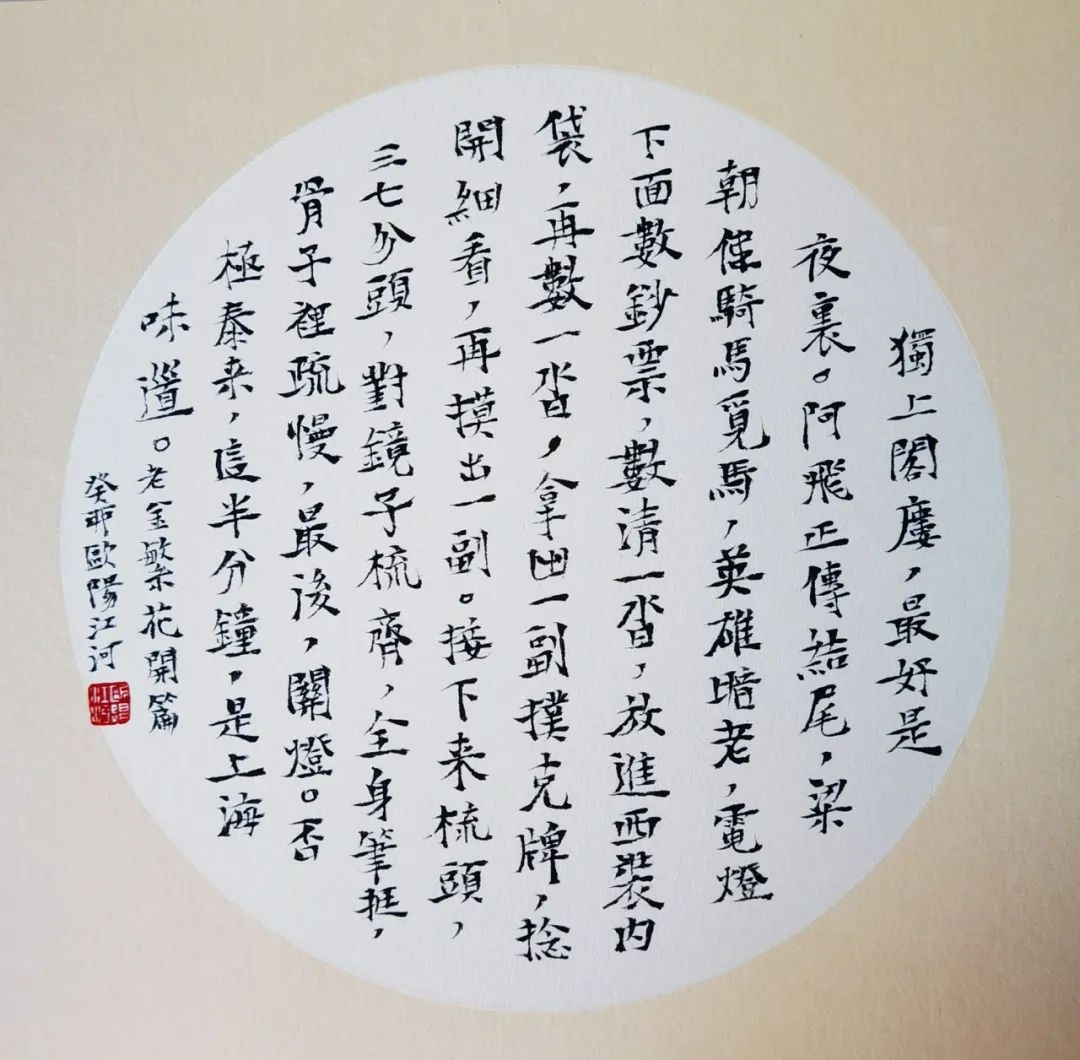 獨上閣廔，最好是
夜裏。阿飛正傳結尾，梁
朝偉騎馬覓馬，英雄暗老，電燈
下面數鈔票，數清一沓，放進西裝内
袋，再數一沓，拿出一副撲克牌，捻
開細看，再摸出一副。接下来梳頭，
三七分頭，對鏡子梳齊，全身筆挺，
骨子裡疏慢，最後，關燈。否
極泰来，這半分鐘，是上海
味道。老金繁花開篇
癸卯歐陽江河
歐陽江河